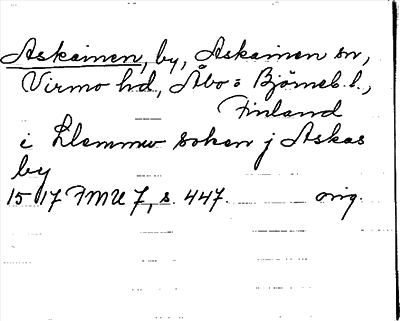 Askainen, by, Askainen sn,
Virmo hd, Åbo = Björneb. l.,
Finland
i Llemmo soken j Askas
by
1517 FMU 7, s. 447. orig.